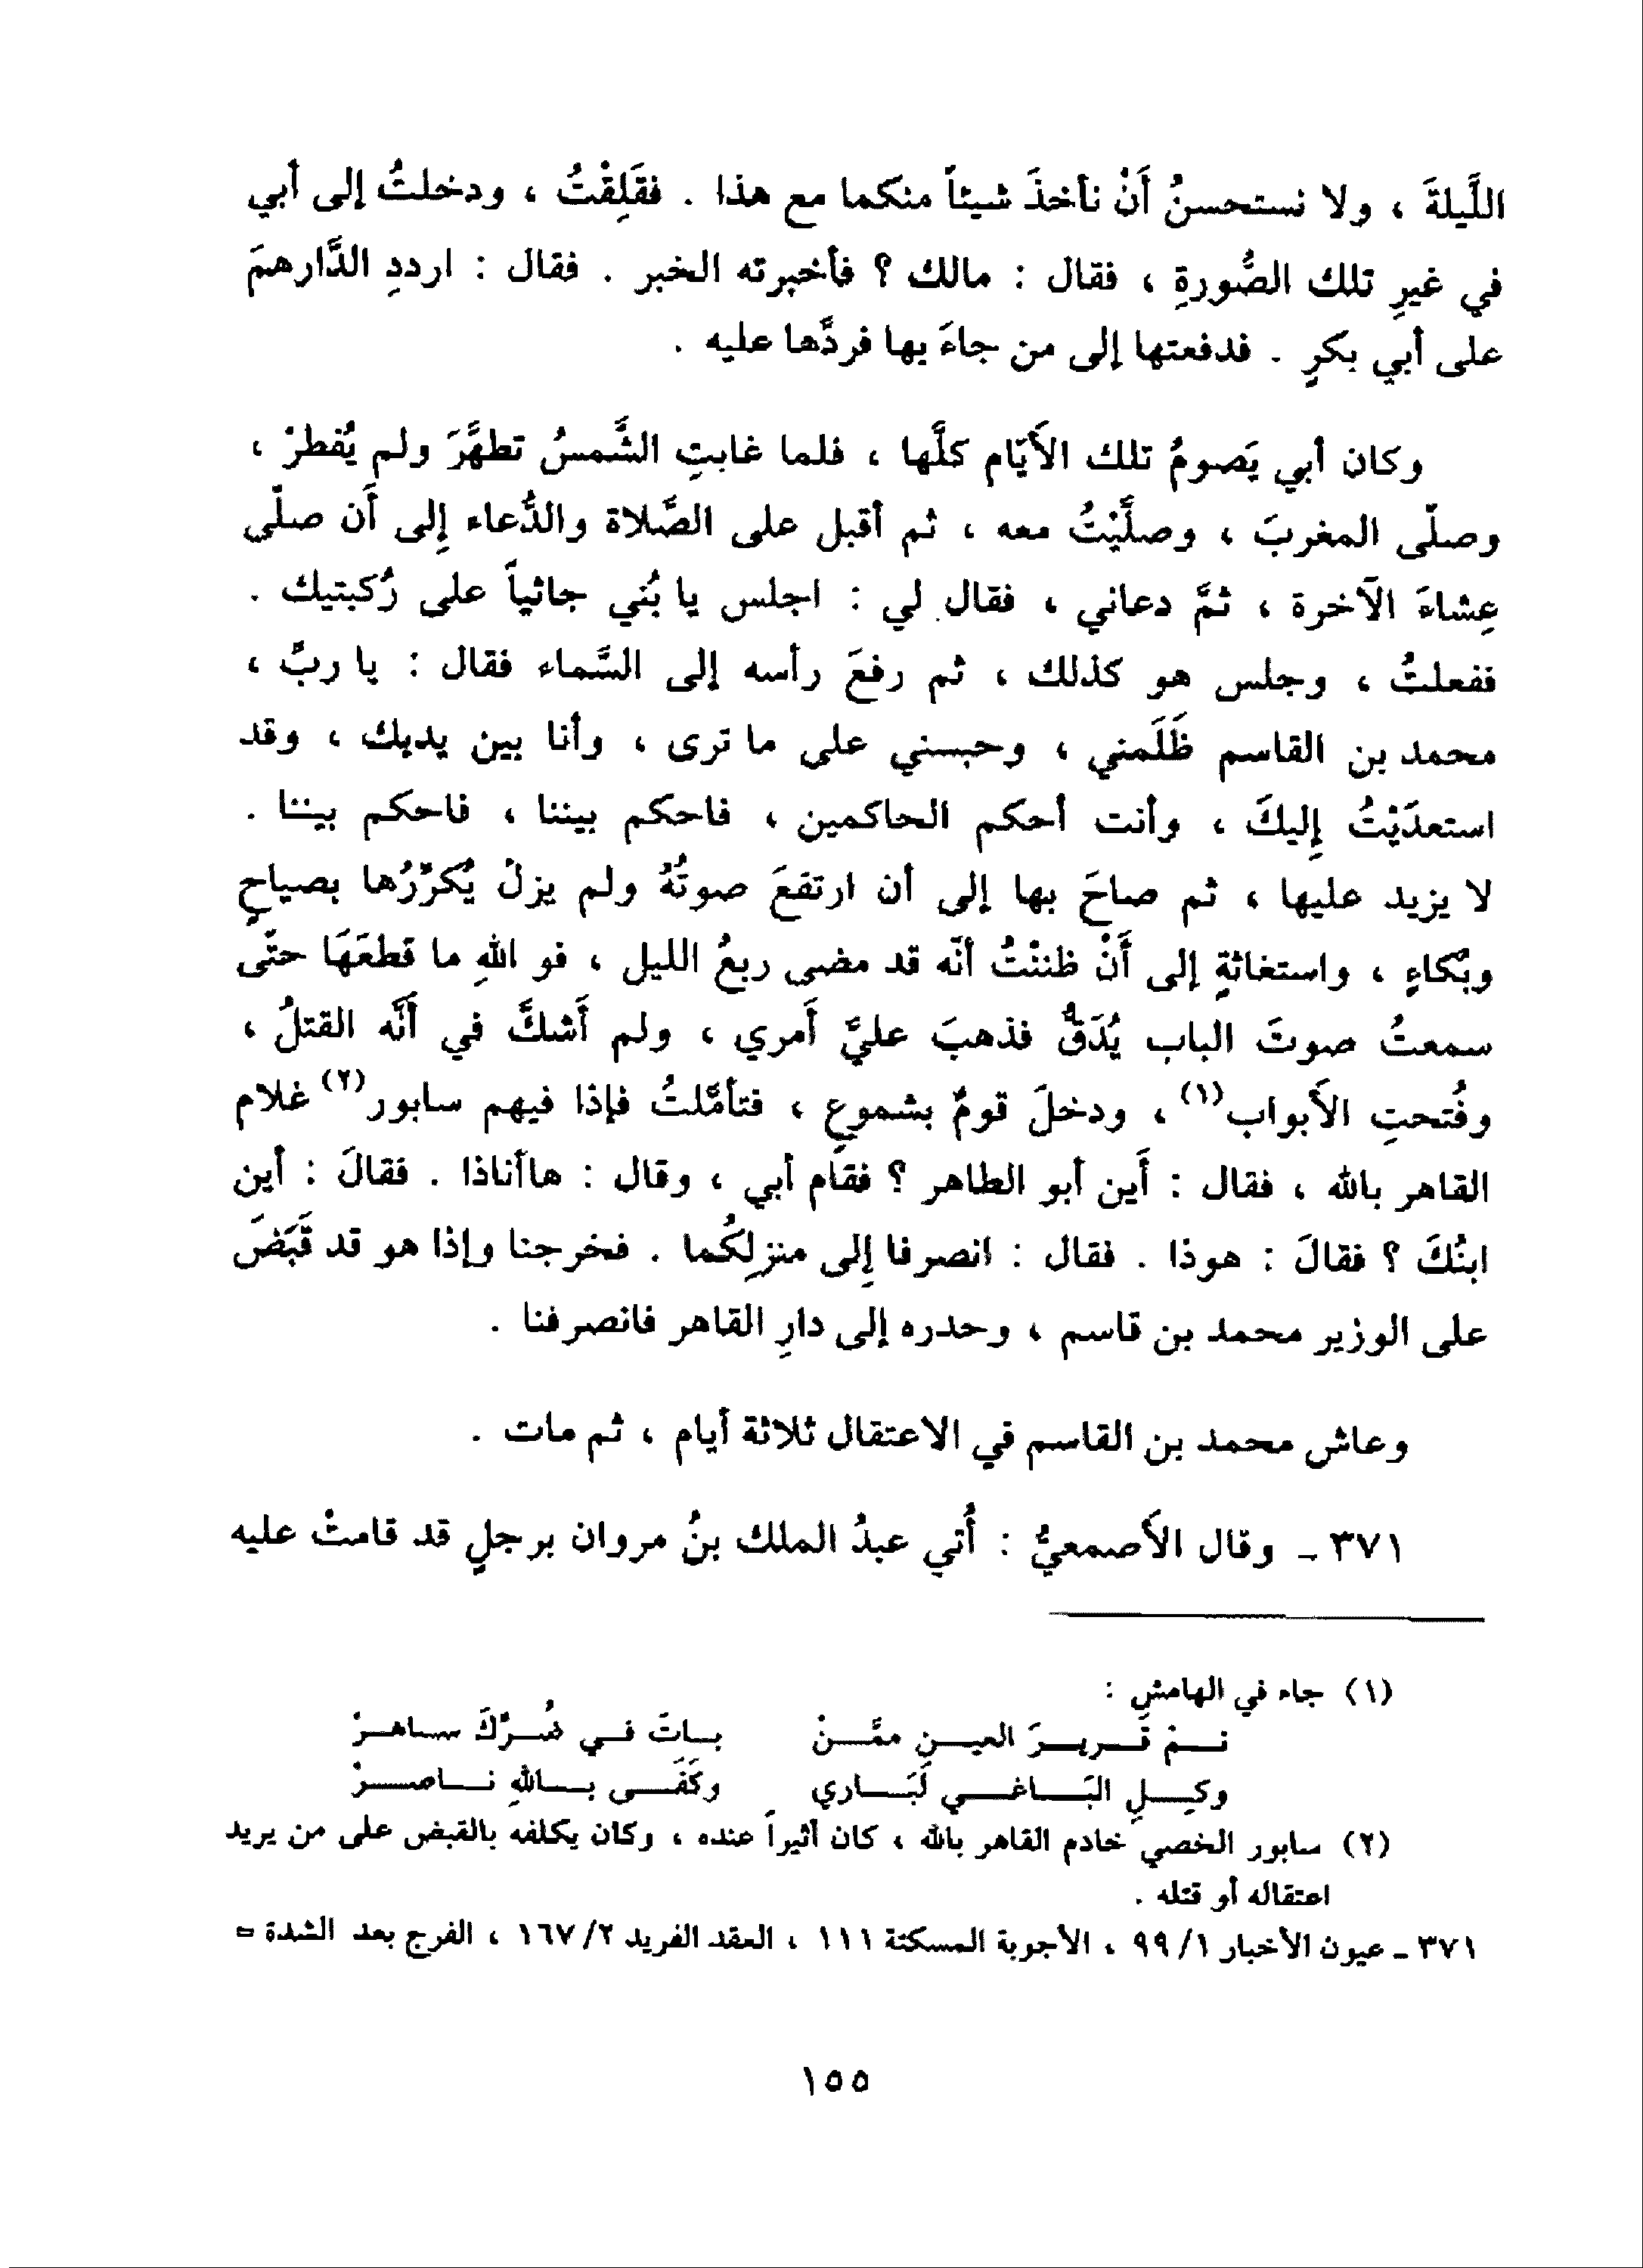 اللَّيلةَ ، ولا نستحسنُ أَنْ نأخذَ شيئاً منكما مع هذا . فقَلِقْتُ ، ودخلتُ إلى أبي
في غيرِ تلك الصُّورةِ ، فقال : مالك ؟ فأخبرته الخبر . فقال : ارددِ الدَّارهمَ
على أبي بكرٍ . فدفعتها إلى من جاءَ بها فردَّها عليه .
وكان أبي يَصومُ تلك الأَيّام كلَّها ، فلما غابتِ الشَّمسُ تطهَّرَ ولم يُفطرْ ،
وصلّى المغربَ ، وصلَّيْتُ معه ، ثم أقبل على الصَّلاة والدُّعاء إِلى أَن صلّى
عِشاءَ الآخرة ، ثمَّ دعاني ، فقال لي : اجلس يا بُني جاثياً على رُكبتيك .
ففعلتُ ، وجلس هو كذلك ، ثم رفعَ رأسه إلى السَّماء فقال : يا ربِّ ،
محمد بن القاسم ظَلَمني ، وحبسني على ما ترى ، وأنا بين يديك ، وقد
استعدَيْتُ إِليكَ ، وأنت أحكم الحاكمين ، فاحكم بيننا ، فاحكم بيننا .
لا يزيد عليها ، ثم صاحَ بها إلى أن ارتفعَ صوتُهُ ولم يزلْ يُكرِّرُها بصياحٍ
وبُكاءٍ ، واستغاثةٍ إلى أَنْ ظننْتُ أنّه قد مضى ربعُ الليل ، فو اللهِ ما قطعَهَا حتّى
سمعتُ صوتَ الباب يُدَقُّ فذهبَ عليَّ أَمري ، ولم أَشكَّ في أَنَّه القتلُ ،
وفُتحتِ الأَبواب(١) ، ودخلَ قومٌ بشموعٍ ، فتأمَّلتُ فإذا فيهم سابور(٢) غلام
القاهر بالله ، فقال : أَين أبو الطاهر ؟ فقام أبي ، وقال : هاأناذا . فقالَ : أين
ابنُكَ ؟ فقالَ : هوذا . فقال : انصرفا إِلى منزلِكُما . فخرجنا وإذا هو قد قَبَضَ
على الوزير محمد بن قاسم ، وحدره إلى دارِ القاهر فانصرفنا .
وعاش محمد بن القاسم في الاعتقال ثلاثة أيام ، ثم مات .
٣٧١ - وقال الأَصمعيُّ : أُتي عبدُ الملك بنُ مروان برجلٍ قد قامتْ عليه
(١) جاء في الهامش :
نـم قـريـرَ العيـنِ ممَّـنْ بـاتَ فـي ضُـرِّكَ سـاهـرْ
وكِـلِ البَـاغـي لَبَـاري وكَفَـى بـاللهِ نـاصـرْ
(٢) سابور الخصي خادم القاهر بالله ، كان أثيراً عنده ، وكان يكلفه بالقبض على من يريد
اعتقاله أو قتله .
٣٧١ - عيون الأخبار ١/ ٩٩ ، الأجوبة المسكتة ١١١ ، العقد الفريد ٢/ ١٦٧ ، الفرج بعد الشدة =
١٥٥